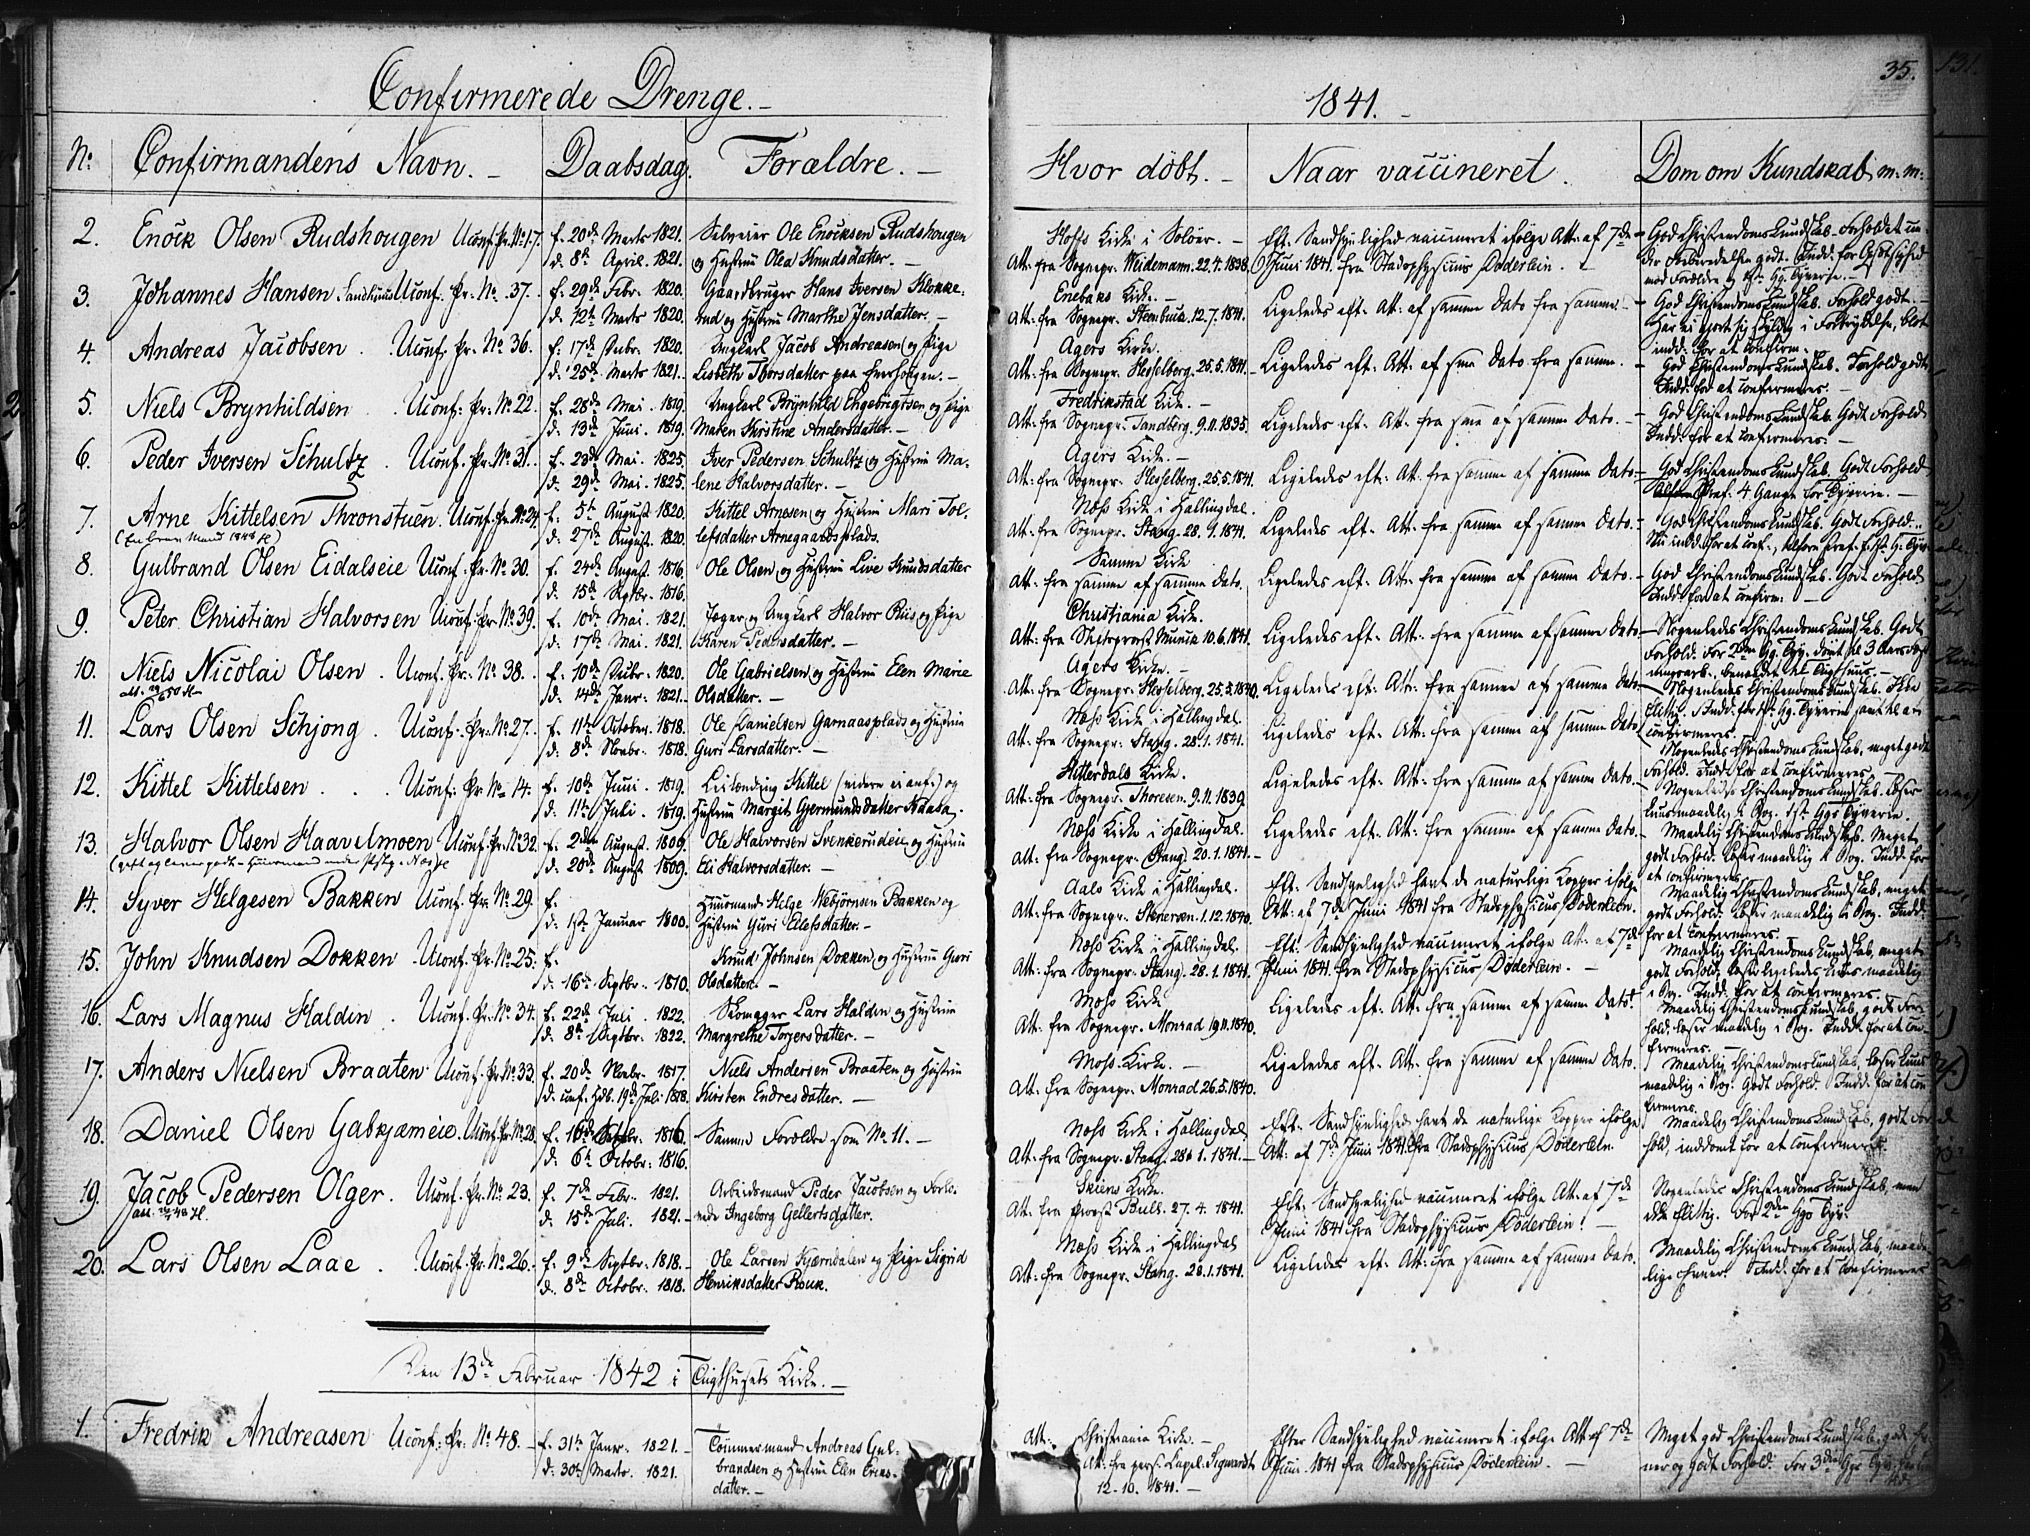 Confirmerede Drenge.
1841.
35.
131.
No
Confirmandens Navn.
Daabsdag.
Forældre.
Hvor döbt.
Naar vaccineret.
Dom om Kundskab m: m:
2. Enock Olsen Rudshougen Uconf: Pr: No 17.
f. 20de Marts 1821.
d. 8de April. 1821.
Selveier Ole Enocksen Rudshougen
og Hustru Olea Knudsdatter.
Hoffs Kirke i Soløer.
Att: fra Sognepr: Weidemann. 22.4.1838.
Eft: Sandsynlighed vaccineret ifölge Att: af 7de
Juni 1841. fra Stadsphysicus Døderlein.
God Christendoms Kundskab. Forholdet un
3. Johannes Hansen Uconf: Pr: No. 37.
f. 29de Febr. 1820.
d. 12te Marts 1820.
Gaardbruger Hans Iversen Klokke-
rud og Hustru Marthe Jensdatter.
Enebaks Kirke.
Att: fra Sognepr: 12.7.1841.
Ligeledes eft: Att: af samme Dato fra samme.
God Christendoms Kundskab. Forhold godt.
Har ei gjort sig skyldig i Forbrydelse, blot
indd: for at confirm.
4. Andreas Jacobsen. Uconf: Pr: No 36.
f. 17de 1820.
d. 25de Marts 1821.
Ungkarl Jacob Andreasen og Pige
Lisbeth Thorsdatter paa
Agers Kirke.
Att: fra Sognepr: Hesselberg. 25.5.1841.
Ligeledes eft: Att: af sme Dato fra samme.
God Christendoms Kundskab. Forhold godt.
Indd: for at confirmeres.
5. Niels Brynhildsen. Uconf: Pr: No. 22.
f. 28de Mai. 1819.
d. 13de Juni. 1819.
Ungkarl Brynhild Engebrigtsen og Pige
Maren Kirstine Andersdatter.
Fredrikstad Kirke.
Att: fra Sognepr: Tandberg. 9.11.1835.
Ligeledes eft: Att: fra sme af samme Dato.
God Christendoms Kundskab. Godt Forhold
Indd: for at confirmeres.
6. Peder Iversen Schultz. Uconf: Pr: No. 31.
f. 23de Mai. 1825.
d. 29de Mai. 1825.
Iver Pedersen Schultz og Hustru Ma-
lene Halvorsdatter.
Agers Kirke.
Att: fra Sognepr: Hesselberg. 25.5.1841.
Ligeledes eft: Att: fra samme af samme Dato.
God Christendoms Kundskab. Godt Forhold
Straf: 4 Gange for Tyverie.
7. Arne Kittelsen Thronstuen. Uconf: Pr: No 24.
f. 5te August 1820.
d. 27de August. 1820.
Kittel Arnesen og Hustru Mari Tol-
lefsdatter Arnegaardsplads.
Næss Kirke i Hallingdal.
Att: fra Sognepr: Stang. 28.1.1841.
Ligeledes eft: Att: fra samme af samme Dato.
God Christendoms Kundskab. Godt Forhold.
8. Gulbrand Olsen Eidalseie Uconf: Pr: No. 30.
f. 24de August. 1816.
d. 15de Septbr. 1816.
Ole Olsen og Hustru Live Knudsdatter
Samme Kirke
Att: fra samme af samme Dato.
Ligeledes eft: Att: fra samme af samme Dato.
God Christendoms Kundskab. Godt Forhold
Indd: for at confirm:
9. Peter Christian Halvorsen Uconf: Pr: No. 39.
f. 10de Mai. 1821.
d. 17de Mai. 1821.
Jæger og Ungkarl Halvor Riis og Pige
Karen Pedersdatter.
Christiania Kirke.
Att: fra Stiftsprovst 10.6.1841.
Ligeledes eft: Att: fra samme af samme Dato
Nogenledes Christendoms Kundskab. Godt
10. Niels Nicolai Olsen. Uconf: Pr: No. 38.
f. 10de 1820.
d. 14de Janr: 1821.
Ole Gabrielsen og Hustru Elen Marie
Olsdatter.
Agers Kirke.
Att: fra Sognepr: Hesselberg. 25.5.1840.
Ligeledes eft: Att: fra samme af samme Dato
Nogenledes Christendoms Kundskab. Ikke
11. Lars Olsen Schjong. Uconf: Pr: No. 27.
f. 11te October. 1818.
d. 8de Novbr. 1818.
Ole Danielsen Garnaasplads og Hustru
Guri Larsdatter.
Næss Kirke i Hallingdal.
Att: fra Sognepr: Stang. 28.1.1841.
Ligeledes eft: Att: fra samme af samme Dato
Nogenledes Christendoms Kundskab, meget godt
Forhold. Indd: for at confirmeres.
12. Kittel Kittelsen. Uconf: Pr: No 14.
f. 10de Juni. 1819.
d. 11te Juli. 1819.
Leilænding Kittel (videre ei anf:) og
Hustru Margit Gjermundsdatter Kaasa.
Hitterdals Kirke.
Att: fra Sognepr: Thoresen. 9.11.1839.
Ligeledes eft: Att: fra samme af samme Dato.
Nogenledes Christendoms Kundskab. Læser
13. Halvor Olsen Haavelmoen Uconf: Pr: No. 32.
f. 2den August. 1809.
d. 20de August 1809.
Ole Halvorsen Svenkerudeie og Hustru
Eli Halvorsdatter.
Næss Kirke i Hallingdal.
Att: fra Sognepr: Stang. 20.1.1841.
Ligeledes eft: Att: fra samme af samme Dato.
Maadelig Christendoms Kundskab. Meget
godt Forhold. Læser maadelig i Bog. Indd: for
at confirmeres.
14. Syver Helgesen Bakken Uconf: Pr: No. 29.
f.
d. 1ste Januar 1800.
Huusmand Helge Nebjörnsen Bakken og
Hustru Guri Eilefsdatter.
Aals Kirke i Hallingdal.
Att: fra Sognepr: Stenersen. 1.12.1840.
Eft: Sandsynlighed havt de naturlige Kopper ifölge
Att: af 7de Juni 1841 fra Stadsphysicus Døderlein.
Maadelig Christendoms Kundskab, meget
godt Forhold. Læser maadelig i Bog. Indd:
for at confirmeres.
15. John Knudsen Dokken. Uconf: Pr: No. 25.
f.
d. 16de Septbr. 1810.
Knud Johnsen Dokken og Hustru Guri
Olsdatter.
Næss Kirke i Hallingdal.
Att: fra Sognepr: Stang. 28.1.1841.
Eft: Sandsynlighed vaccineret ifölge Att: af 7de
Juni 1841. fra Stadsphysicus Døderlein.
Maadelig Christendoms Kundskab, meget
i Bog. Indd: for at confirmeres.
16. Lars Magnus Haldin. Uconf: Pr: No. 34.
f. 22de Juli. 1822.
d. 8de Septbr. 1822.
Skomager Lars Haldin og Hustru
Margrethe Torgersdatter.
Moss Kirke
Att: fra Sognepr: Monrad 19.11.1840.
Ligeledes eft: Att: fra samme af samme Dato.
Maadelig Christendoms Kundskab, godt For-
hold, læser maadelig i Bog. Indd: for at con-
firmeres.
17. Anders Nielsen Braaten. Uconf: Pr: No. 33.
f. 20de Novbr. 1817.
d. conf. Hdb. 19de Juli 1818.
Niels Andersen Braaten og Hustru
Kirsten Endresdatter.
Moss Kirke.
Att: fra Sognepr: Monrad 26.5.1840.
Ligeledes eft: Att: fra samme af samme Dato.
Maadelig Christendoms Kundskab, læser kuns
maadelig i Bog. Godt Forhold. Indd: for at con-
firmeres.
18. Daniel Olsen Gabkjæmeie. Uconf: Pr: No. 28.
f. 16de Septbr. 1816.
d. 6te Octobr: 1816.
Samme Forældre som No. 11.
Næss Kirke i Hallingdal
Att: fra Sognepr: Stang. 28. 1. 1841.
Eft: Sandsynlighed havt de naturlige Kopper ifölge
Att: af 7de Juni 1841. fra Stadsphysicus Døderlein.
Maadelig Christendoms Kundskab, godt For-
hold, inddömt for at confirmeres.
19. Jacob Pedersen Olger. Uconf: Pr: No. 23.
f. 7de Febr. 1821.
d. 15de Juli. 1821.
Arbeidsmand Peder Jacobsen og Forlo-
vede Ingeborg Gellertsdatter.
Skiens Kirke.
Att: fra Provst Bull. 27. 4. 1841.
Eft: Sandsynlighed vaccineret ifölge Att: af 7de
Juni 1841 fra Stadsphysicus Døderlein.
Nogenledes Christendoms Kundskab, men
ikke flittig. For 2den Tyv:
20. Lars Olsen Laae. Uconf: Pr: No. 26.
f. 9de Septbr. 1818.
d. 8de Octobr. 1818.
Ole Larsen Kjærndalen og Pige Sigrid
Henriksdatter Rouk.
Næss Kirke i Hallingdal
Att: fra Sognepr: Stang. 28.1.1841.
Ligeledes eft: Att: fra samme af samme Dato.
Maadelig Christendoms Kundskab, maade-
lige Evner. Indd: for at confirmeres
Den 13de Februar 1842 i Tugthusets Kirke.
1. Fredrik Andreasen Uconf: Pr: No. 48.
f. 31te Janr. 1821.
d. 30te Marts. 1821.
Tömmermand Andreas Gul-
brandsen og Hustru Elen Erens-
datter.
Att:
Christiania Kirke.
Att: fra pers: Capel. Sigwardt
12-10. 1841.
Efter Sandsynlighed vaccineret ifölge Att: af 7de
Juni. 1841 fra Stadsphysicus Døderlein.
Meget god Christendoms Kundskab, gode Ev-
ner og godt Forhold. For 3die